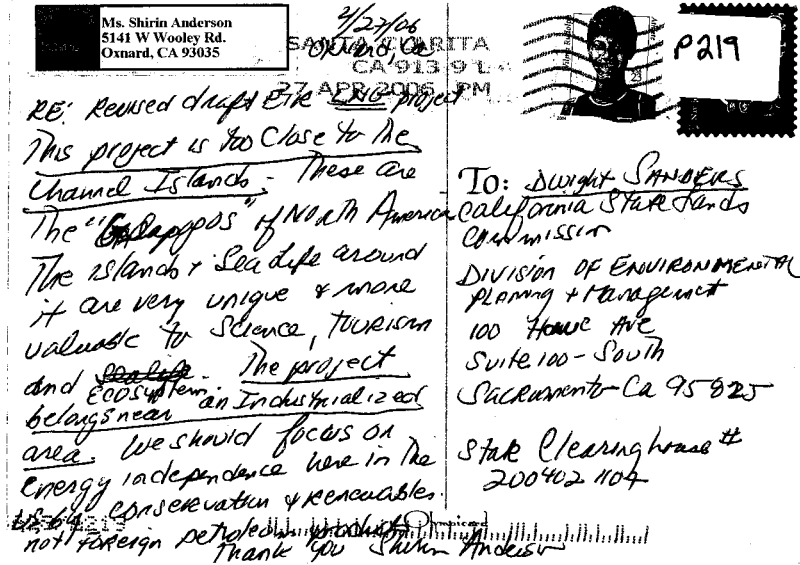 Ms. Shirin Anderson
5141 W Wooley Rd.
Oxnard, CA 93035
4/27/06
Oxnard, Ca
SANTA CLARITA
CA 913 9 1
27 APR 2006 PM
P219
RE: Revised draft EIR LNG project
This project is too close to the
Channel Islands. These are
The "Galapagos" of North America
The islands & Sea Life around
it are very unique & more
valuable to Science, tourism
and
Ecosystem. The project
belongs near an Industrialized
area. We should focus on
energy independence here in the
US by conservation & renewables
not foreign petroleum products
Thank you Shirin Anderson
To: Dwight SANDERS
California State Lands
Commission
DIVISION OF ENVIRONMENTAL
Planing & Management
100 Howe Ave
Suite 100 - South
Sacramento Ca 95825
State Clearinghouse #
200402 1104